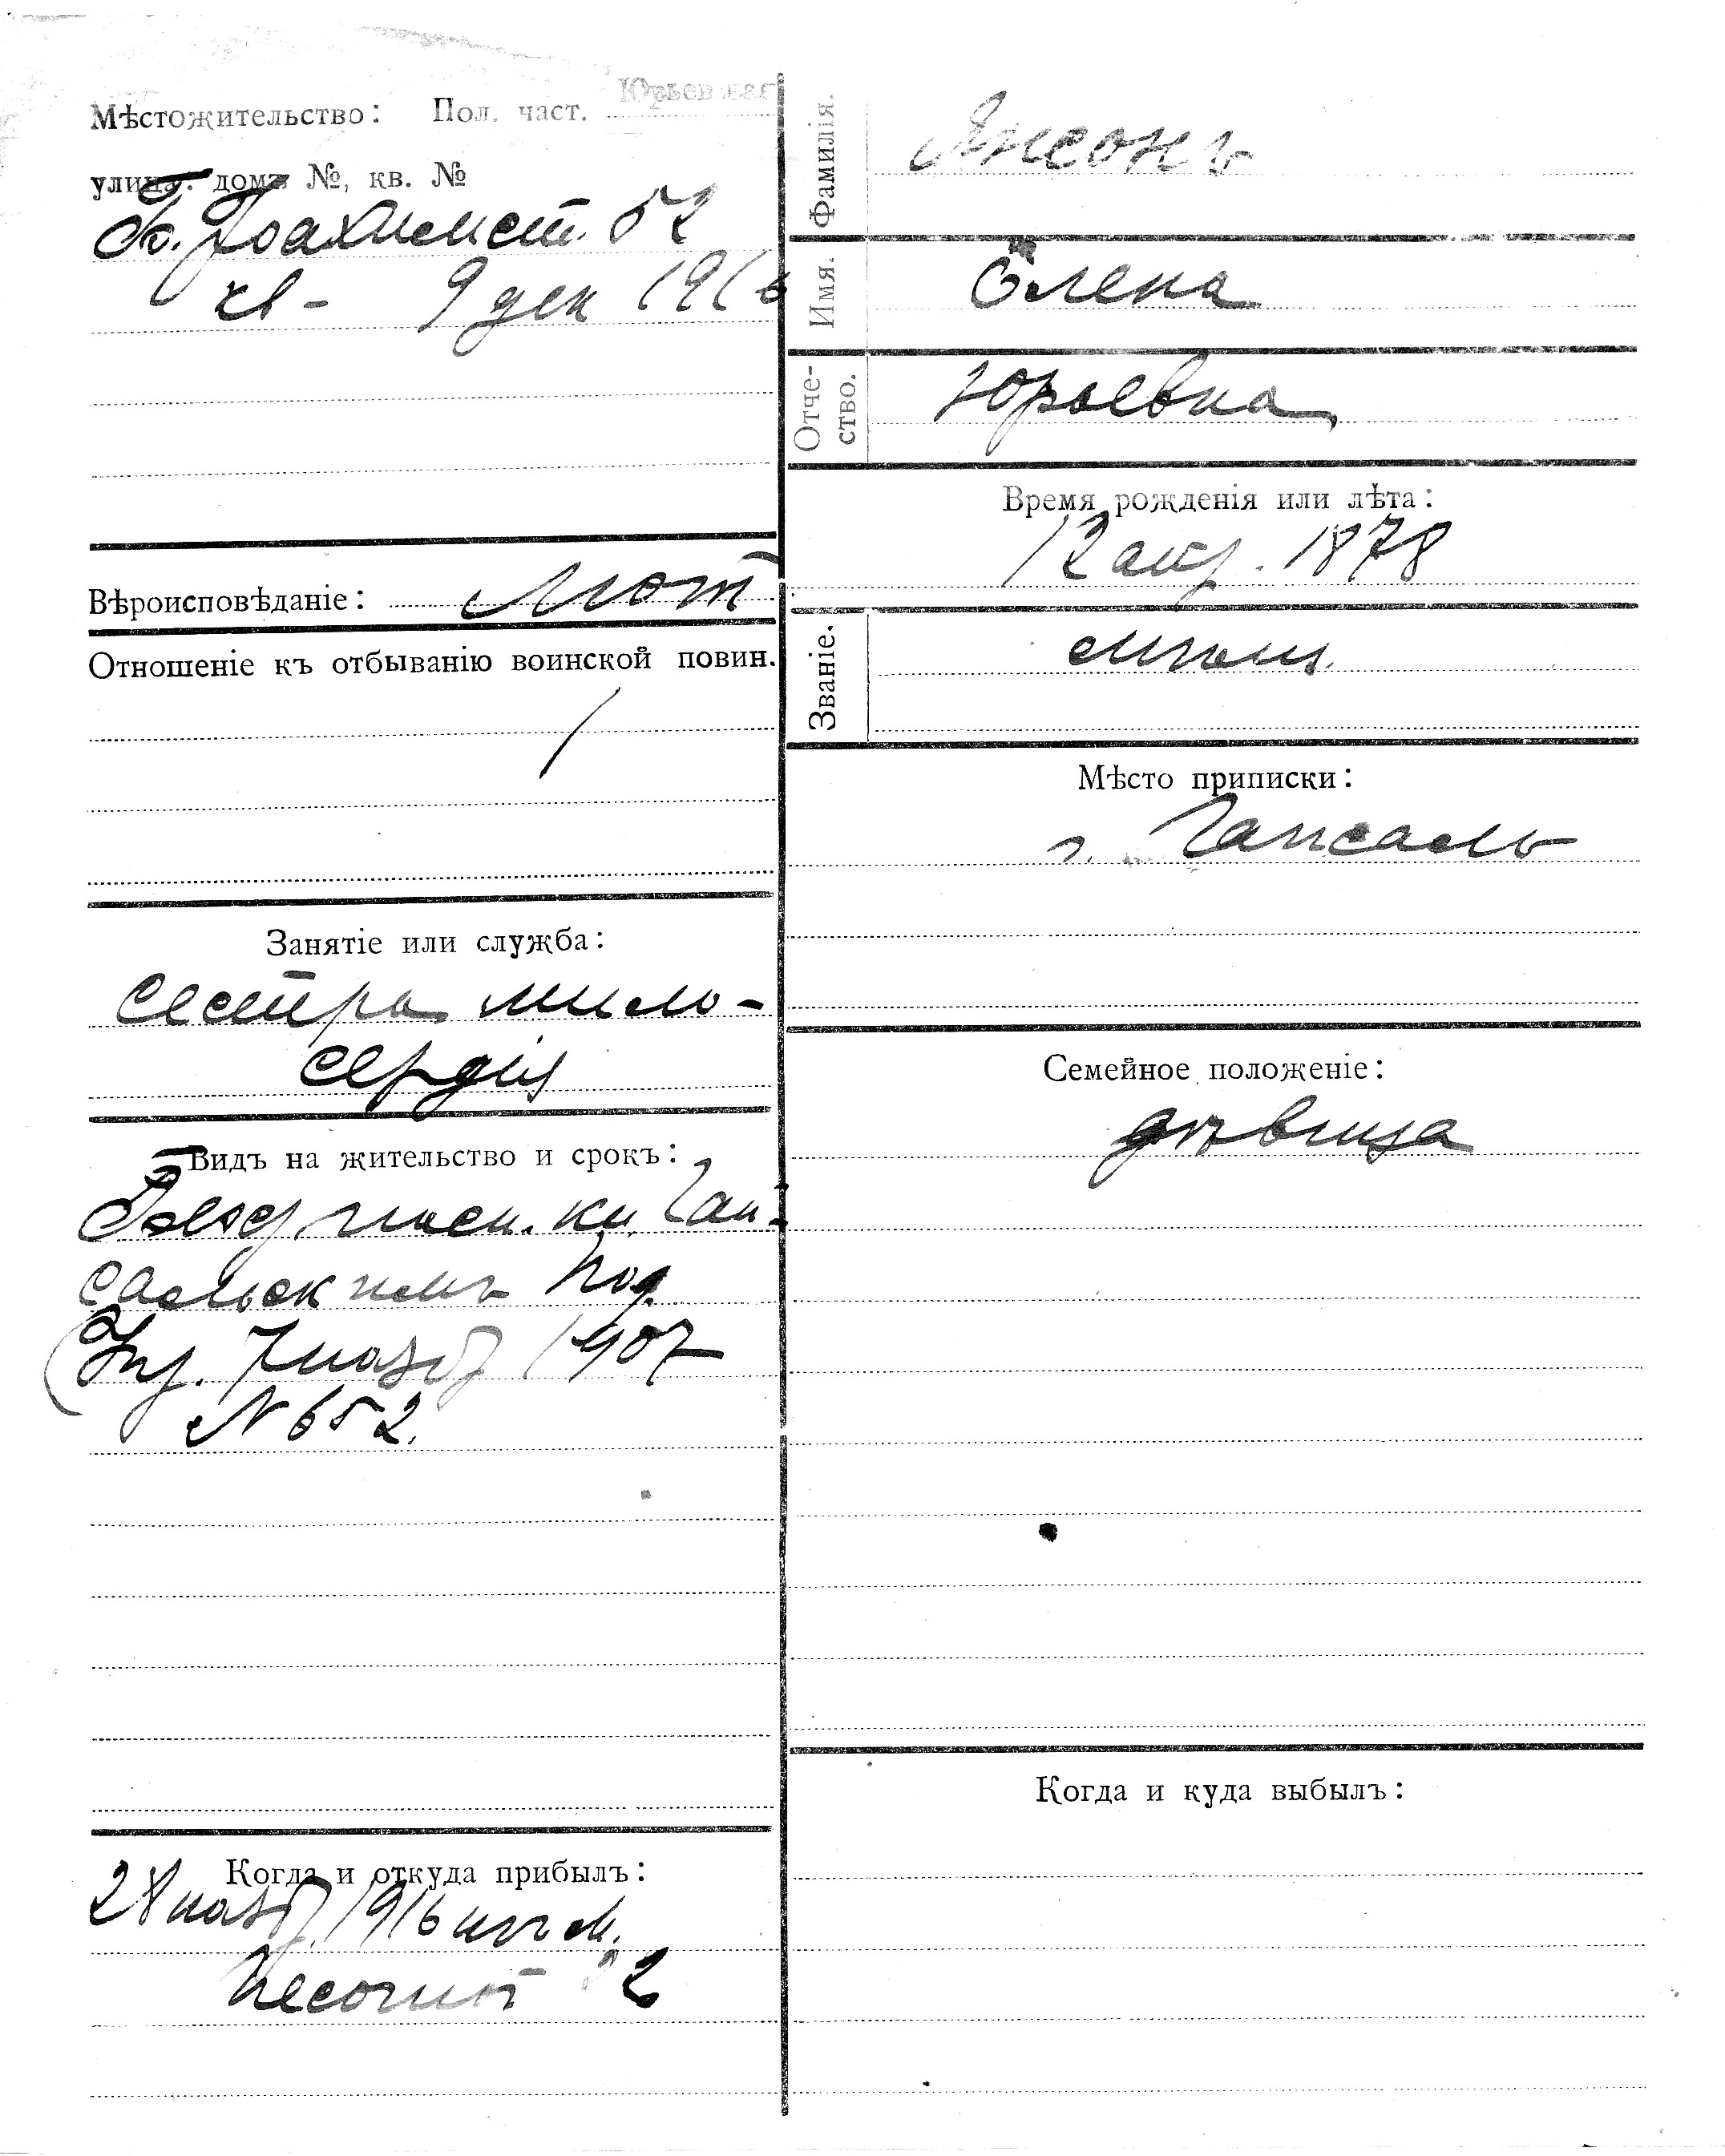 Мѣстожительство: Пол. част. Юрьев
улица: домъ №, кв. №
52
кв - 9 дек 1916
Вѣроисповѣданіе: Лют
Отношеніе къ отбыванію воинской повин.
/
Занятіе или служба:
сестра мило-
сердія
Видъ на жительство и срокъ:
Безс. пасп. кн. Гап-
сальск
7 нояб 1907
№ 652.
Когда и откуда прибылъ:
28 нояб. 1916
Песочной 22
Фамилія. Янсонъ
Имя. Елена
Отче-
ство. Юрьевна
Время рожденія или лѣта:
12 апр. 1878
Званіе. мѣщ.
Мѣсто приписки:
г. Гапсаль
Семейное положеніе:
дѣвица
Когда и куда выбылъ: